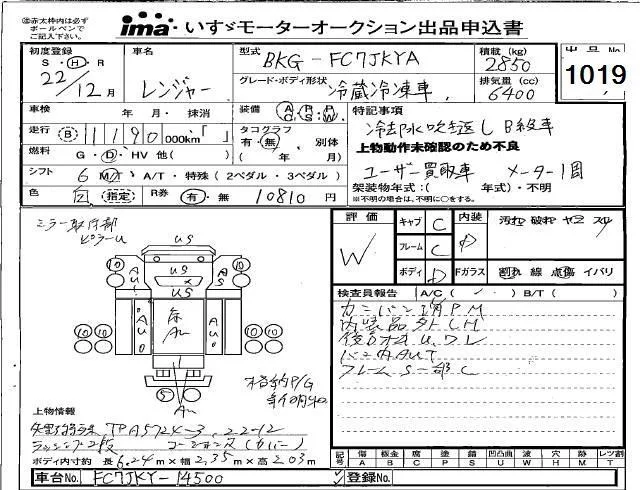 ㊟赤太枠内は必ず
ボールペンで
ご記入下さい。
ima いすゞモーターオークション出品申込書
初度登録
S・H・R
22/12月
車名
レンジャー
型式
BKG-FC7JKYA
グレード・ボディ形状
冷蔵冷凍車
積載(kg)
2850
排気量(cc)
6400
出品No.
1019
車検 年 月・抹消
装備 A/C P/S P/W
特記事項
冷却水吹き返し B級車
走行 B 1190 000km「 」
タコグラフ
有・無 別体
( 年 月)
上物動作未確認のため不良
燃料 G・D・HV 他( )
ユーザー買取車 メーター1周
シフト 6 M/T・A/T・特殊(2ペダル・3ペダル)
架装物年式:( 年式)・不明
※不明の場合は、不明に○をする。
色 白 指定 R券 有・無 10810円
評価
W
キャブ C
フレーム C
ボディ D
内装 D
Fガラス 割れ 線 点傷 イバリ
汚れ 破れ ヤニ スレ
検査員報告 A/C( ✓ ・ )B/T( )
内装品外しH
バン内AUT
フレームS一部C
ミラー取付部
ピラーU
US
10
10
AU
US
AU
US
10
10
AU
S
10
10
5
AU
格納P/G
上物情報
TPA5724-3, 22-12
ラッシング2段
ボディ内寸約 長6.24m×幅2.35m×高2.03m
記号 傷 A 板金 B 腐 C 塗 P 錆 S 凹凸曲 U 波 W 穴 H 跡 M レツ割 T
車台No. FC7JKY-14500
登録No.